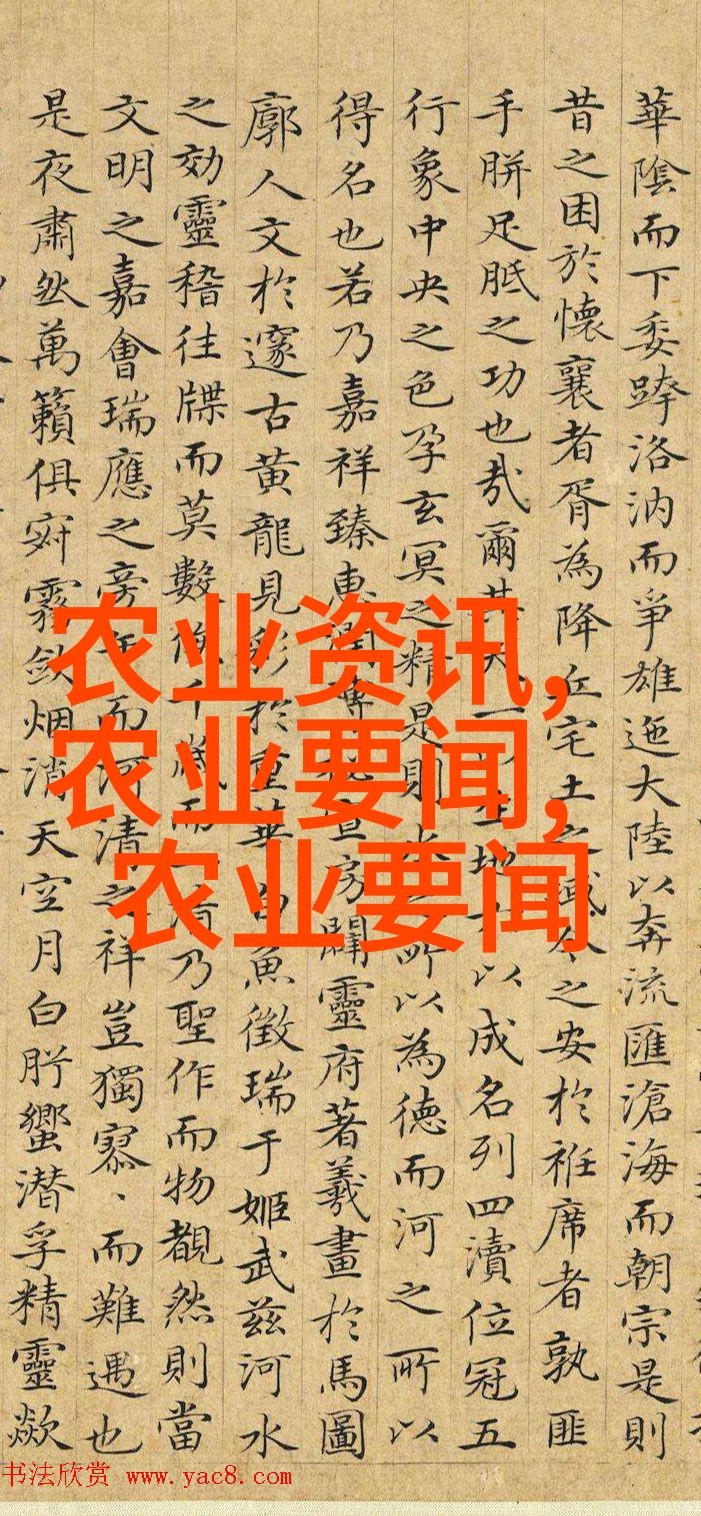 華陰而下委跨洛汭而爭雄迤大陸以奔流匯滄海而朝宗是則
昔之困於懷襄者胥為降丘宅土之域今之安於袵席者孰匪
手胼足胝之功也哉爾其天一生地以成名列四瀆位冠五
行象中央之色孕玄冥之精是則所以為德而河之所以
得名也若乃嘉祥臻惠宣房闢靈府著羲畫於馬圖
廓人文於邃古黃龍見彩於重華白魚徵瑞于姬武兹河水
之効靈稽往牒而莫數俟千歲而一清乃聖作而物覩然則當
文明之嘉會瑞應之旁午而河清之祥豈獨寥丶而難遇也
是夜肅然萬籟俱寂霧斂烟消天空月白肹蠁潜孚精靈歘
农业资讯,
农业要闻,
农业要闻
书法欣赏 www.yac8.com